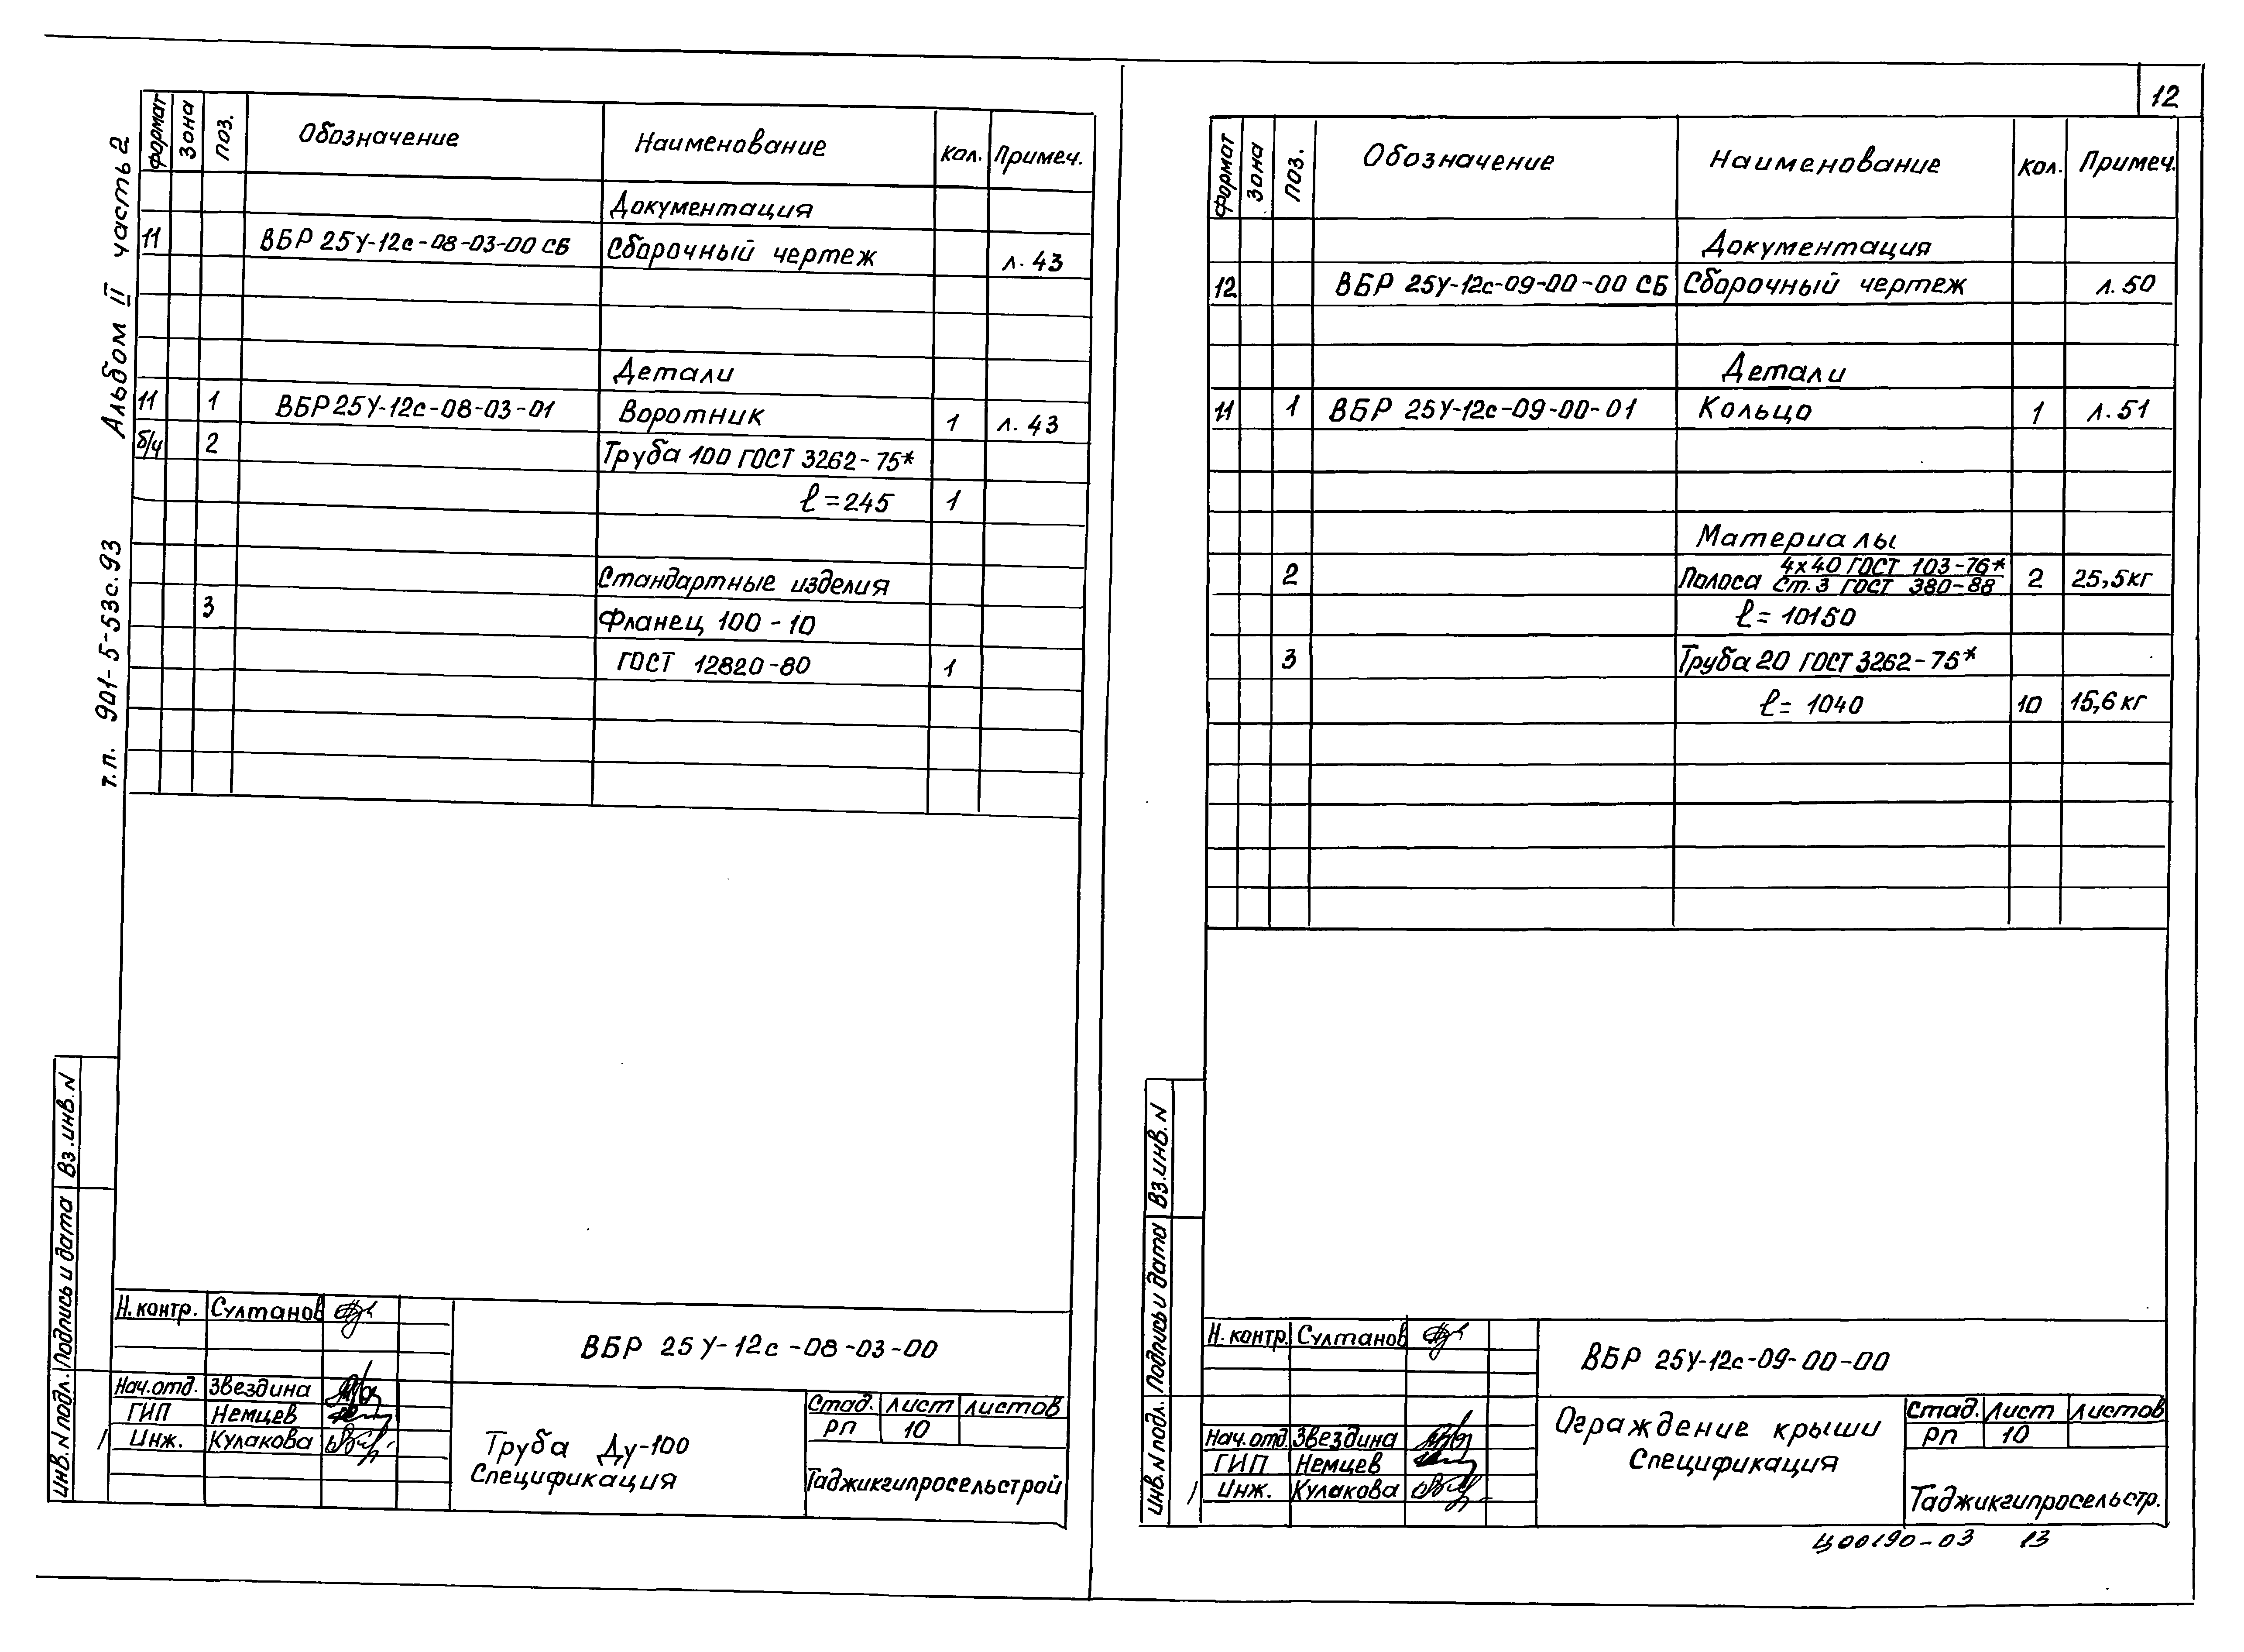 Альбом II часть 2
т.п. 901-5-53с.93
формат Зона поз. Обозначение Наименование Кол. Примеч.
Документация
11 ВБР 25У-12с-08-03-00 СБ Сборочный чертеж л. 43
Детали
11 1 ВБР 25У-12с-08-03-01 Воротник 1 л. 43
б/ч 2 Труба 100 ГОСТ 3262-75*
ℓ=245 1
Стандартные изделия
3 Фланец 100-10
ГОСТ 12820-80 1
Инв. N подл. Подпись и дата Вз. инв. N
Н. контр. Султанов
Нач. отд. Звездина
ГИП Немцев
Инж. Кулакова
ВБР 25У-12с-08-03-00
Труба Ду-100
Спецификация
Стад. Лист Листов
РП 10
Таджикгипросельстрой
12
формат Зона поз. Обозначение Наименование Кол. Примеч.
Документация
12 ВБР 25У-12с-09-00-00 СБ Сборочный чертеж л. 50
Детали
11 1 ВБР 25У-12с-09-00-01 Кольцо 1 л. 51
Материалы
2 Полоса 4х40 ГОСТ 103-76* 2 25,5кг
Ст.3 ГОСТ 380-88
ℓ= 10150
3 Труба 20 ГОСТ 3262-75*
ℓ= 1040 10 15,6 кг
Инв. N подл. Подпись и дата Вз. инв. N
Н. контр. Султанов
Нач. отд. Звездина
ГИП Немцев
Инж. Кулакова
ВБР 25У-12с-09-00-00
Ограждение крыши
Спецификация
Стад. Лист Листов
РП 10
Таджикгипросельстр.
Ц00190-03 13